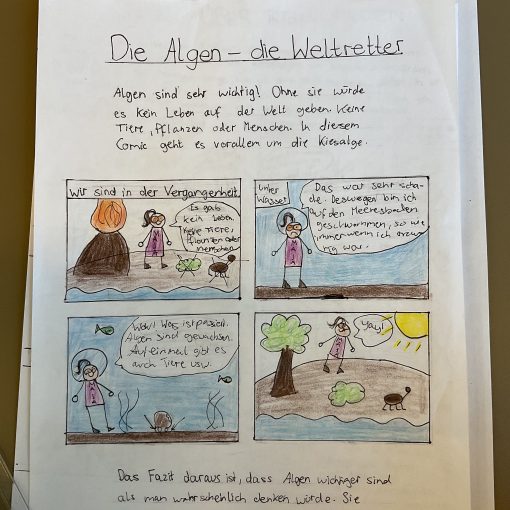 Die Algen – die Weltretter
Algen sind sehr wichtig! Ohne sie würde
es kein Leben auf der Welt geben. Keine
Tiere, Pflanzen oder Menschen. In diesem
Comic geht es vorallem um die Kieselalge.
Wir sind in der Vergangenheit
Es gab
kein Leben,
keine Tiere,
Pflanzen oder
Menschen.
Unter
Wasser
Das war sehr scha-
de. Deswegen bin ich
auf den Meeresboden
geschwommen, so wie
immer wenn ich
war.
Wow! Was ist passiert.
Algen sind gewachsen.
Auf einmal gibt es
auch Tiere usw.
Yay!
Das Fazit daraus ist, dass Algen wichtiger sind
als man wahrscheinlich denken würde. Sie